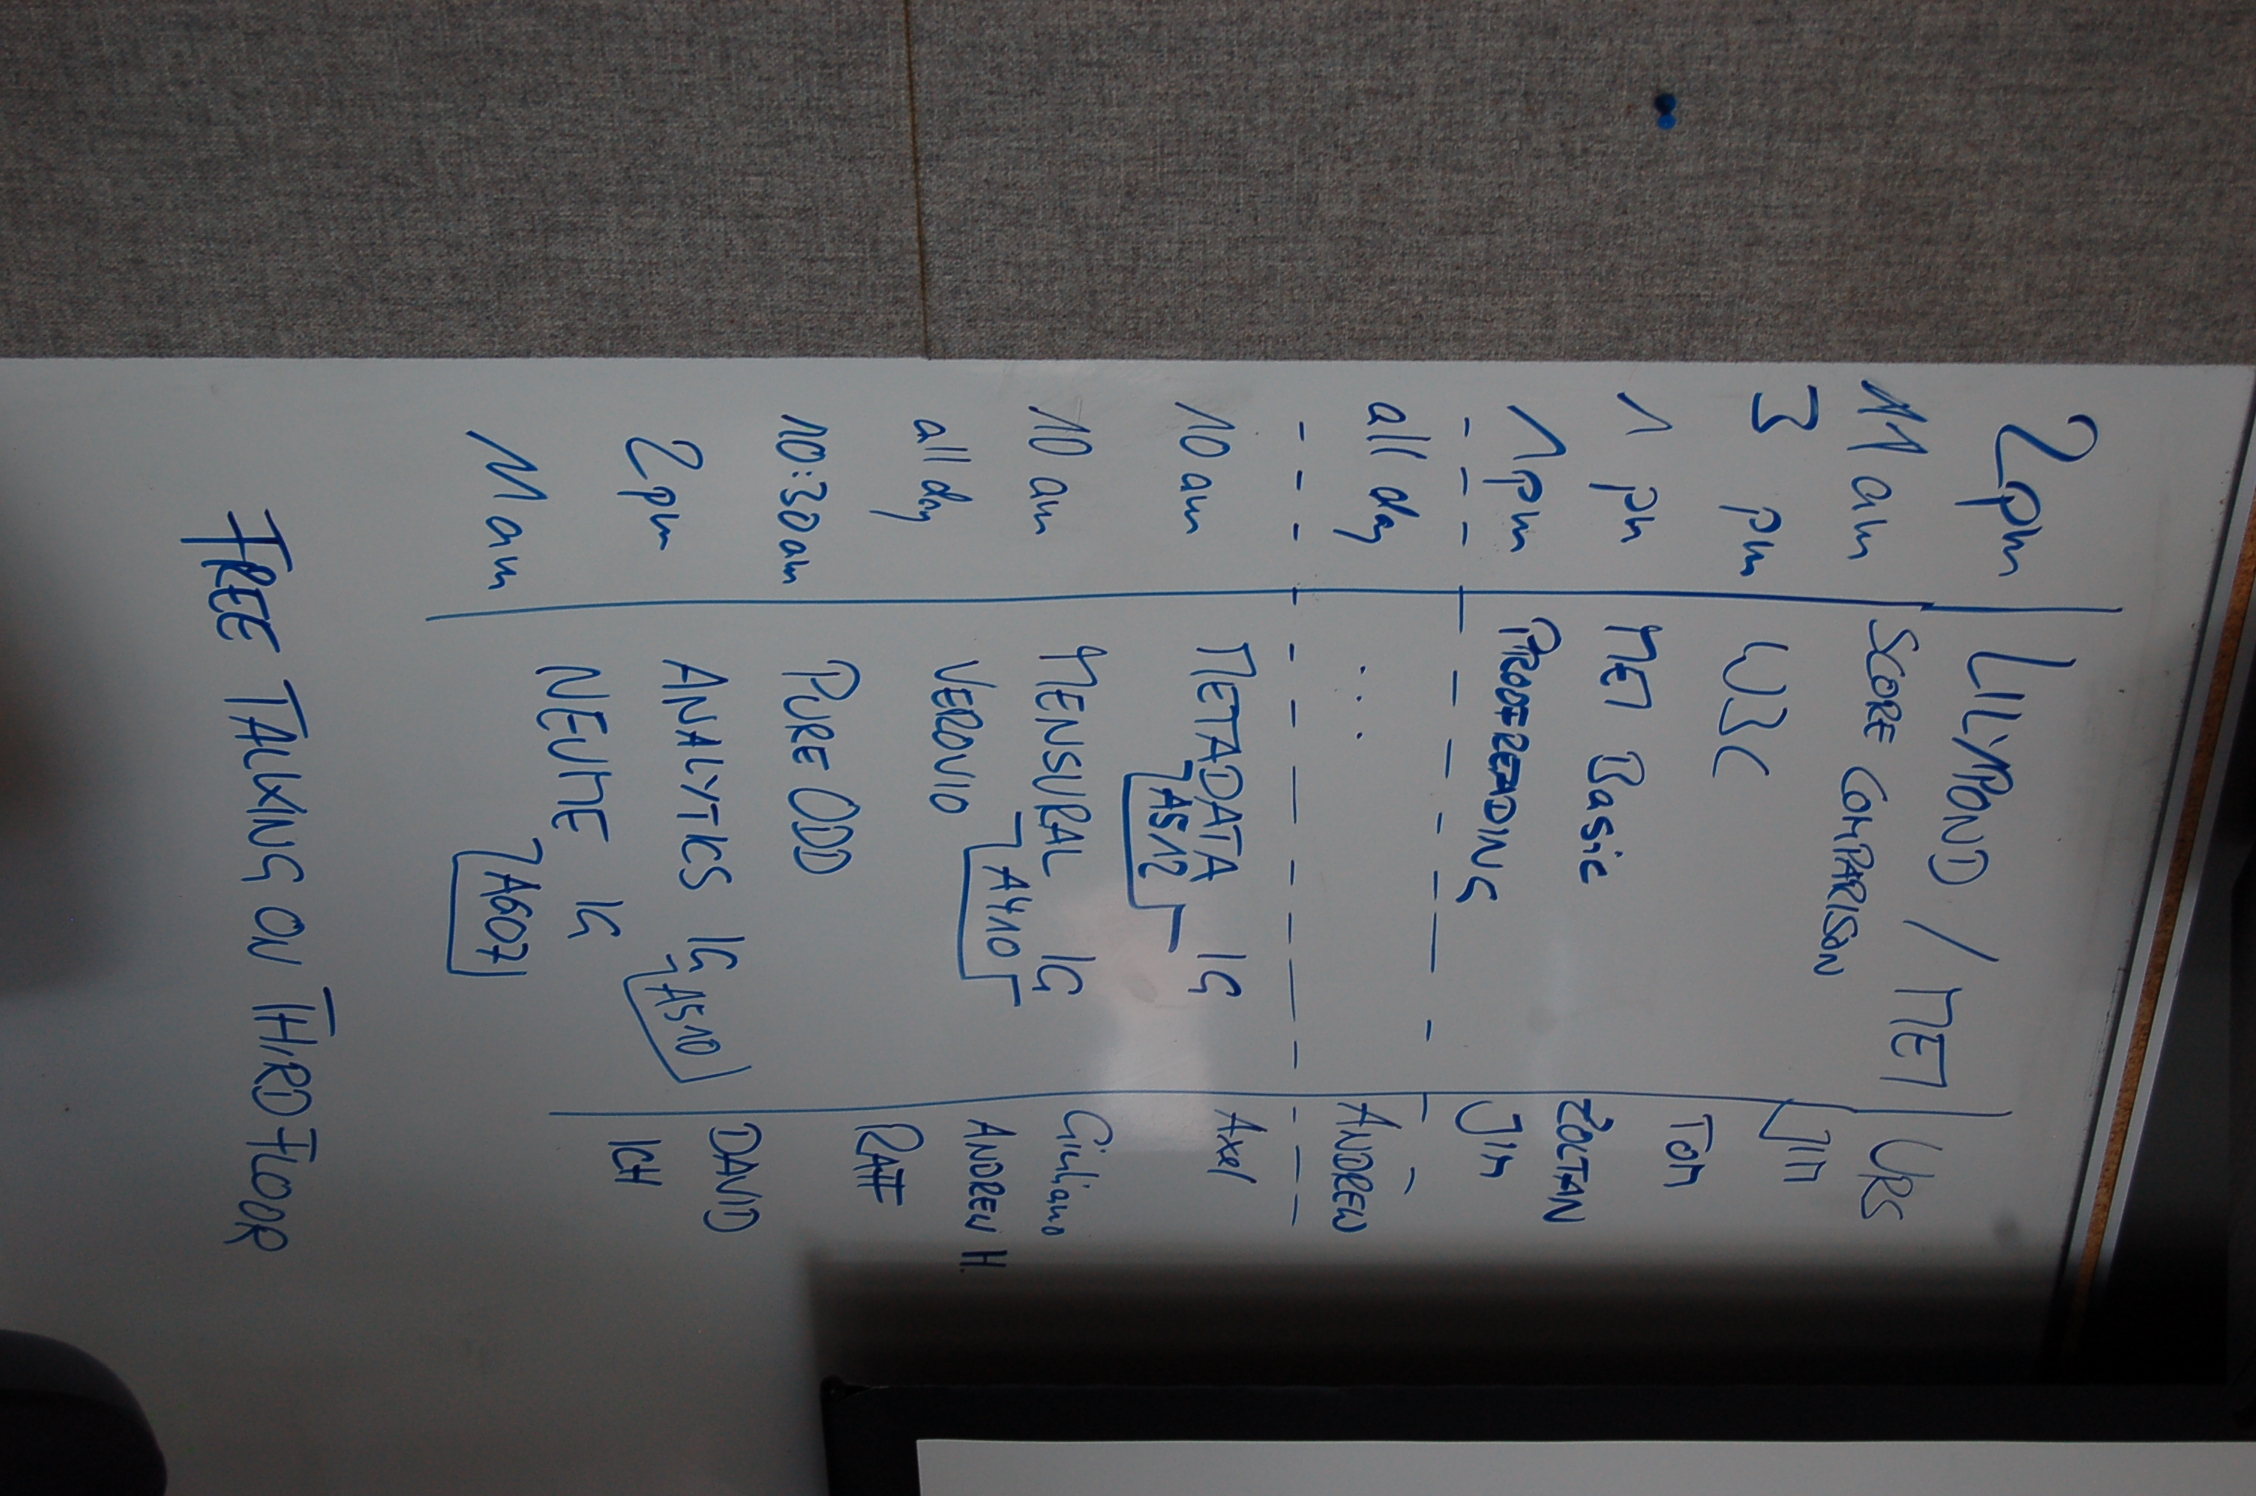 2pm LILYPOND / MEI URS
11 am SCORE COMPARISON JIM
3 pm W3C TOM
1 pm MEI Basic ZOLTAN
1pm PROOFREADING JIM
all day ... ANDREW
10 am METADATA IG Axel
A512
10 am MENSURAL IG Giuliano
A410
all day VEROVIO ANDREW H.
10:30 am PURE ODD RAFF
2pm ANALYTICS IG A510 DAVID
11 am NEUME IG ICH
A607
FREE TALKING ON THIRD FLOOR